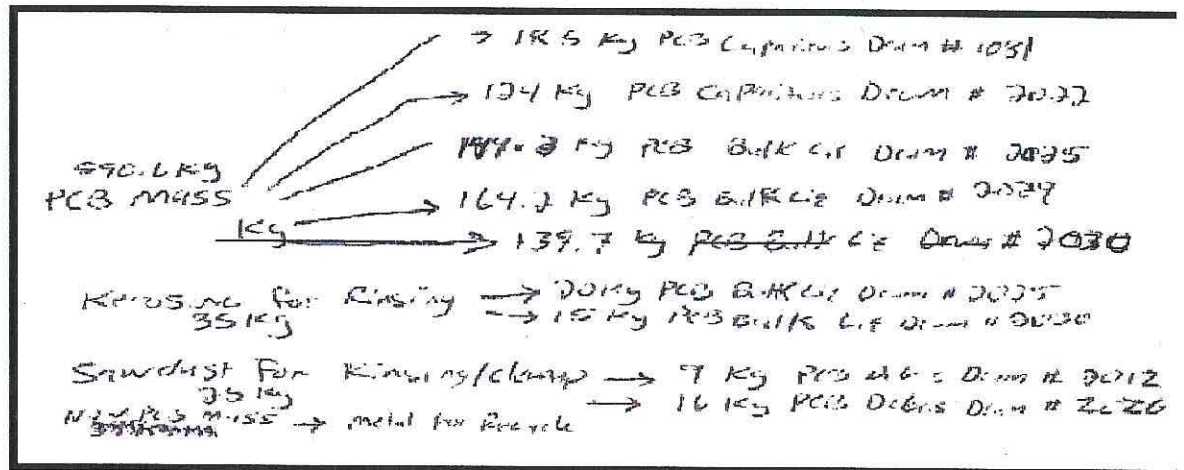 → 18.5 Kg PCB Capacitors Drum # 1031
→ 124 Kg PCB Capacitors Drum #
Kg PCB Bulk Liq Drum # 2025
PCB Mass → 164.2 Kg PCB Bulk Liq Drum #
Kg → 139.7 Kg PCB Bulk Liq Drum # 2030
Kerosine for Rinsing → 20 Kg PCB Bulk Liq Drum # 2025
35 Kg → 15 Kg PCB Bulk Liq Drum # 2030
Sawdust for Rinsing/cleanup → 9 Kg PCB Drum # 2012
25 Kg → 16 Kg PCB Debris Drum # 2020
PCB Mass → Metal for Recycle